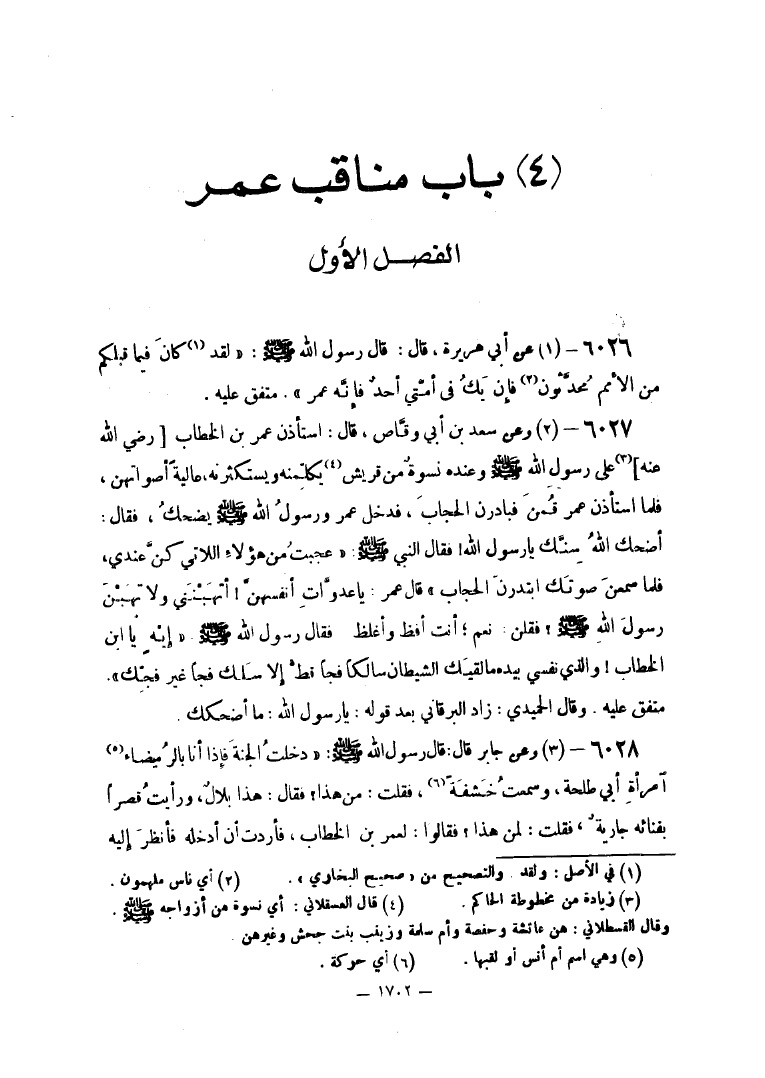 (٤) باب مناقب عمر
الفصل الأول
٦٠٢٦ – (١) عن أبي هريرة ، قال : قال رسول الله ﷺ : « لقد (١) كانَ فيما قبلكم
من الأمم مُحدَّثون(٢) فإن يَكُ في أمَّتي أحدٌ فإنَّه عمر » . متفق عليه .
٦٠٢٧ – (٢) وعن سعد بن أبي وقَّاص ، قال : استأذن عمر بن الخطاب [ رضي الله
عنه](٣) على رسول الله ﷺ وعنده نسوةٌ من قريش(٤) يكلِّمنه ويستكثرنه، عاليةً أصواتهن ،
فلما استأذن عمر قُمنَ فبادرن الحجابَ ، فدخل عمر ورسولُ الله ﷺ يضحكُ ، فقال :
أضحك اللهُ سِنَّك يا رسول الله! فقال النبي ﷺ : « عجبتُ من هؤلاءِ اللاتي كنَّ عندي،
فلما سمعنَ صوتَك ابتدرنَ الحجابَ » قال عمر : يا عدوَّاتِ أنفسهنَّ ! أتهَبْنَني ولا تهَبْنَ
رسولَ اللهِ ﷺ ؟ فقلن : نعم ؛ أنت أفظ وأغلظ فقال رسول الله ﷺ : « إيْهٍ يا ابن
الخطاب ! والذي نفسي بيده ما لقيَك الشيطان سالكاً فجاً قطُّ إلا سلك فجاً غير فجِّك».
متفق عليه . وقال الحميدي : زاد البرقاني بعد قوله : يا رسول الله : ما أضحكك .
٦٠٢٨ – (٣) وعن جابر قال: قال رسول الله ﷺ: « دخلتُ الجنةَ فإذا أنا بالرُّميضاء(٥)
امرأةِ أبي طلحة ، وسمعتُ خَشَفَةً(٦) ، فقلت : من هذا؟ فقال : هذا بلالٌ، ورأيتُ قصراً
بفنائه جاريةٌ ، فقلت : لمن هذا ؟ فقالوا : لعمر بن الخطاب ، فأردت أن أدخله فأنظرَ إليه
(١) في الأصل : ولقد . والتصحيح من « صحيح البخاري » . (٢) أي ناس ملهمون .
(٣) زيادة من مخطوطة الحاكم . (٤) قال العسقلاني : أي نسوة من أزواجه ﷺ .
وقال القسطلاني : هن عائشة وحفصة وأم سلمة وزينب بنت جحش وغيرهن .
(٥) وهي اسم أم أنس أو لقبها . (٦) أي حركة .
– ١٧٠٢ –